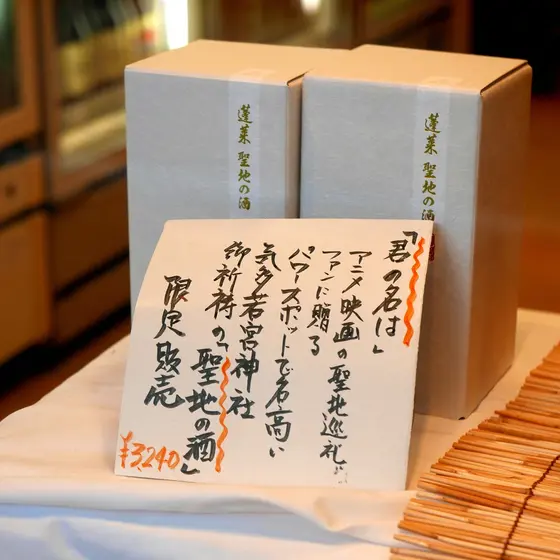 蓬莱 聖地の酒
蓬莱 聖地の酒
「君の名は」
アニメ映画の聖地巡礼
ファンに贈る
パワースポットで名高い
気多若宮神社
御祈祷の「聖地の酒」
限定販売
¥3,240